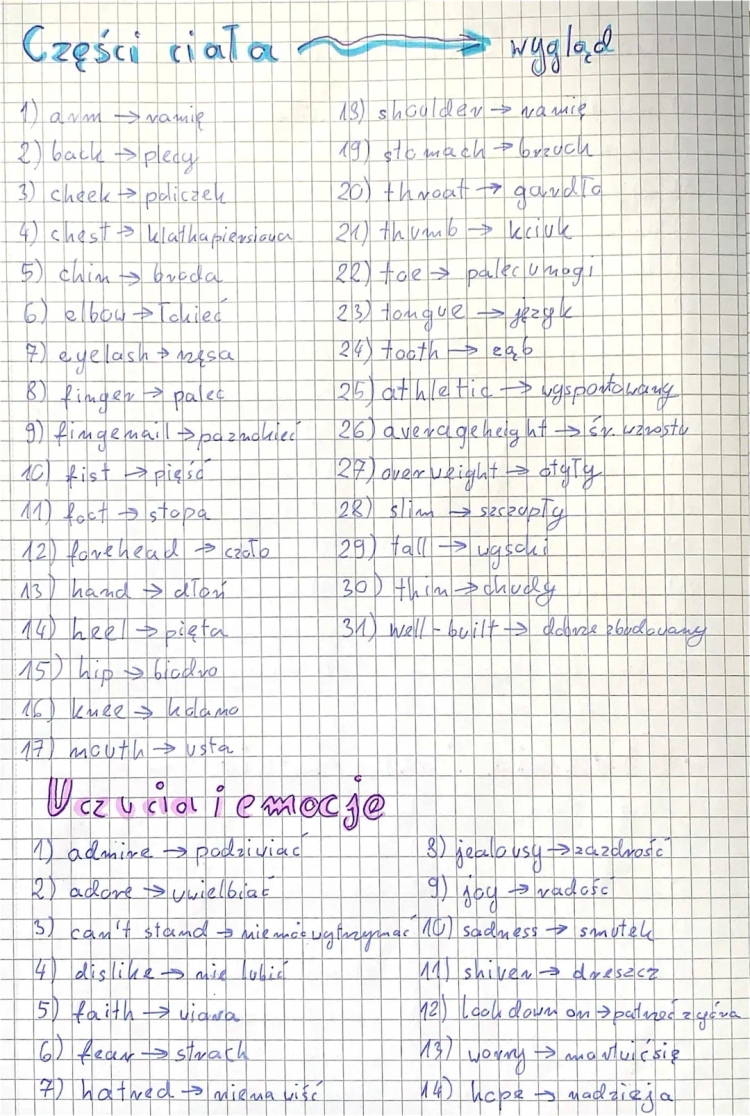 Części ciała → wygląd
1) arm → ramię
2) back → plecy
3) cheek → policzek
4) chest → klatka piersiowa
5) chin → broda
6) elbow → łokieć
7) eyelash → rzęsa
8) finger → palec
9) fingernail → paznokieć
10) fist → pięść
11) foot → stopa
12) forehead → czoło
13) hand → dłoń
14) heel → pięta
15) hip → biodro
16) knee → kolano
17) mouth → usta
18) shoulder → ramię
19) stomach → brzuch
20) throat → gardło
21) thumb → kciuk
22) toe → palec u nogi
23) tongue → język
24) tooth → ząb
25) athletic → wysportowany
26) average height → śr. wzrostu
27) overweight → otyły
28) slim → szczupły
29) tall → wysoki
30) thin → chudy
31) well-built → dobrze zbudowany
Uczucia i emocje
1) admire → podziwiać
2) adore → uwielbiać
3) can't stand → nie móc wytrzymać
4) dislike → nie lubić
5) faith → wiara
6) fear → strach
7) hatred → nienawiść
8) jealousy → zazdrość
9) joy → radość
10) sadness → smutek
11) shiver → dreszcz
12) look down on → patrzeć z góry
13) worry → martwić się
14) hope → nadzieja